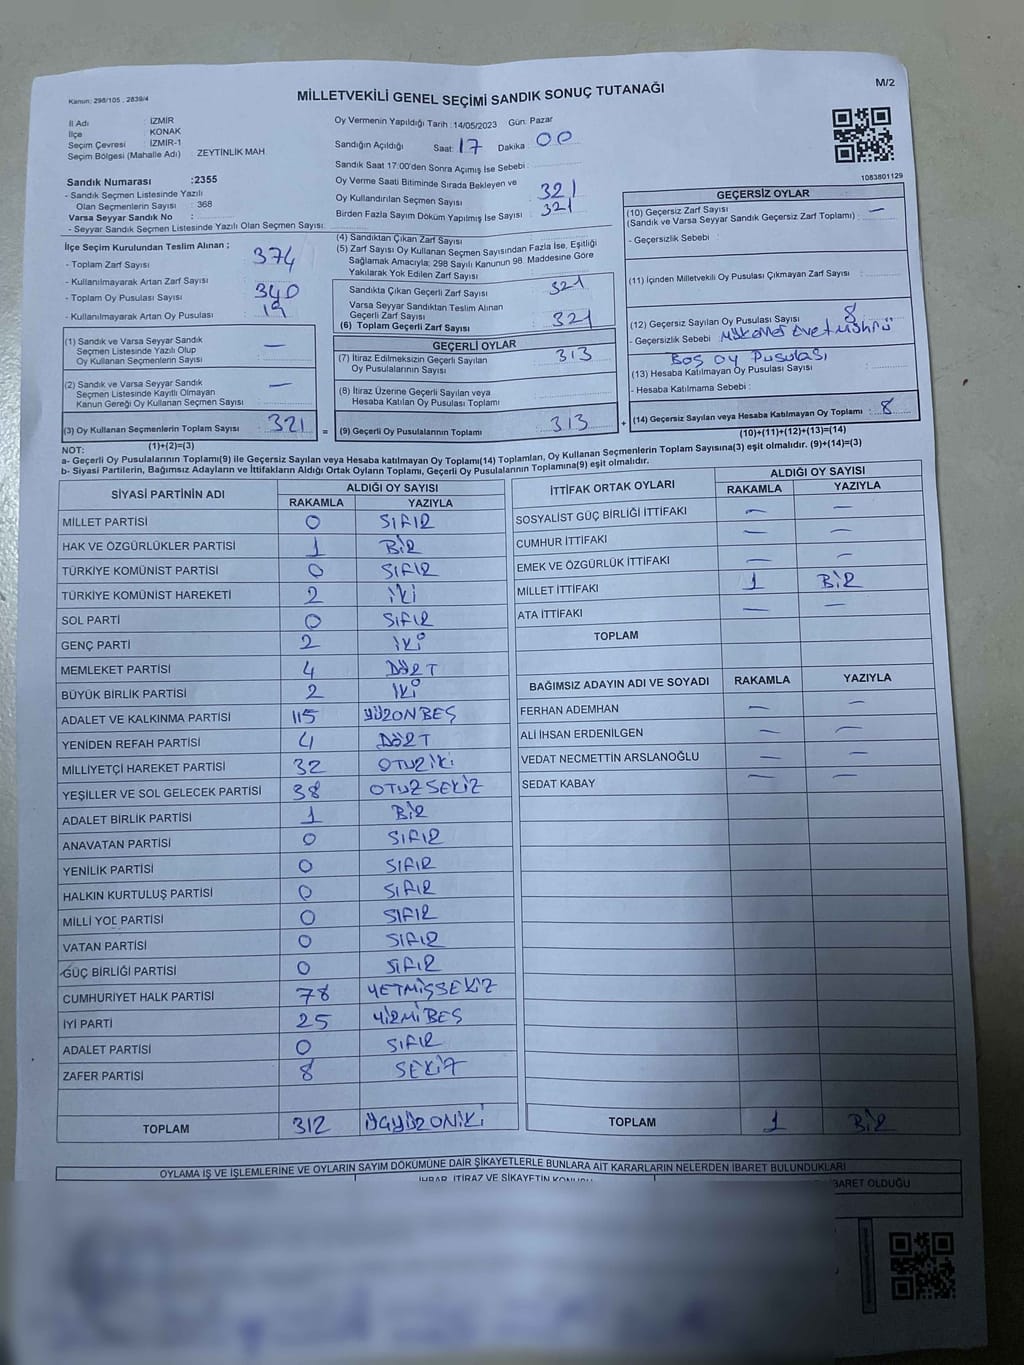 Kanun: 298/105 , 2839/4
MİLLETVEKİLİ GENEL SEÇİMİ SANDIK SONUÇ TUTANAĞI
M/2
İl Adı : İZMİR
İlçe : KONAK
Seçim Çevresi : İZMİR-1
Seçim Bölgesi (Mahalle Adı) : ZEYTİNLİK MAH.
Sandık Numarası :2355
- Sandık Seçmen Listesinde Yazılı
Olan Seçmenlerin Sayısı : 368
Varsa Seyyar Sandık No :
- Seyyar Sandık Seçmen Listesinde Yazılı Olan Seçmen Sayısı:
Oy Vermenin Yapıldığı Tarih : 14/05/2023 Gün: Pazar
Sandığın Açıldığı Saat: 17 Dakika : 00
Sandık Saat 17:00'den Sonra Açımış İse Sebebi :
Oy Verme Saati Bitiminde Sırada Bekleyen ve
Oy Kullandırılan Seçmen Sayısı : 321
Birden Fazla Sayım Döküm Yapılmış İse Sayısı : 321
1083801129
İlçe Seçim Kurulundan Teslim Alınan ;
- Toplam Zarf Sayısı : 374
- Kullanılmayarak Artan Zarf Sayısı :
- Toplam Oy Pusulası Sayısı : 340
- Kullanılmayarak Artan Oy Pusulası : 19
(1) Sandık ve Varsa Seyyar Sandık
Seçmen Listesinde Yazılı Olup
Oy Kullanan Seçmenlerin Sayısı : —
(2) Sandık ve Varsa Seyyar Sandık
Seçmen Listesinde Kayıtlı Olmayan
Kanun Gereği Oy Kullanan Seçmen Sayısı : —
(3) Oy Kullanan Seçmenlerin Toplam Sayısı : 321
(1)+(2)=(3)
(4) Sandıktan Çıkan Zarf Sayısı :
(5) Zarf Sayısı Oy Kullanan Seçmen Sayısından Fazla İse, Eşitliği
Sağlamak Amacıyla; 298 Sayılı Kanunun 98. Maddesine Göre
Yakılarak Yok Edilen Zarf Sayısı :
Sandıkta Çıkan Geçerli Zarf Sayısı : 321
Varsa Seyyar Sandıktan Teslim Alınan
Geçerli Zarf Sayısı :
(6) Toplam Geçerli Zarf Sayısı : 321
GEÇERLİ OYLAR
(7) İtiraz Edilmeksizin Geçerli Sayılan
Oy Pusulalarının Sayısı : 313
(8) İtiraz Üzerine Geçerli Sayılan veya
Hesaba Katılan Oy Pusulası Toplamı :
= (9) Geçerli Oy Pusulalarının Toplamı : 313
GEÇERSİZ OYLAR
(10) Geçersiz Zarf Sayısı
(Sandık ve Varsa Seyyar Sandık Geçersiz Zarf Toplamı) : —
- Geçersizlik Sebebi :
(11) İçinden Milletvekili Oy Pusulası Çıkmayan Zarf Sayısı :
(12) Geçersiz Sayılan Oy Pusulası Sayısı : 8
- Geçersizlik Sebebi : Evet Mührü
Boş oy Pusulası
(13) Hesaba Katılmayan Oy Pusulası Sayısı :
- Hesaba Katılmama Sebebi :
+ (14) Geçersiz Sayılan veya Hesaba Katılmayan Oy Toplamı : 8
(10)+(11)+(12)+(13)=(14)
NOT:
a- Geçerli Oy Pusulalarının Toplamı(9) ile Geçersiz Sayılan veya Hesaba Katılmayan Oy Toplamı(14) Toplamları, Oy Kullanan Seçmenlerin Toplam Sayısına(3) eşit olmalıdır. (9)+(14)=(3)
b- Siyasi Partilerin, Bağımsız Adayların ve İttifakların Aldığı Ortak Oyların Toplamı, Geçerli Oy Pusulalarının Toplamına(9) eşit olmalıdır.
SİYASİ PARTİNİN ADI ALDIĞI OY SAYISI
RAKAMLA YAZIYLA
MİLLET PARTİSİ 0 SIFIR
HAK VE ÖZGÜRLÜKLER PARTİSİ 1 BİR
TÜRKİYE KOMÜNİST PARTİSİ 0 SIFIR
TÜRKİYE KOMÜNİST HAREKETİ 2 İKİ
SOL PARTİ 0 SIFIR
GENÇ PARTİ 2 İKİ
MEMLEKET PARTİSİ 4 DÖRT
BÜYÜK BİRLİK PARTİSİ 2 İKİ
ADALET VE KALKINMA PARTİSİ 115 YÜZONBEŞ
YENİDEN REFAH PARTİSİ 4 DÖRT
MİLLİYETÇİ HAREKET PARTİSİ 32 OTUZİKİ
YEŞİLLER VE SOL GELECEK PARTİSİ 38 OTUZSEKİZ
ADALET BİRLİK PARTİSİ 1 BİR
ANAVATAN PARTİSİ 0 SIFIR
YENİLİK PARTİSİ 0 SIFIR
HALKIN KURTULUŞ PARTİSİ 0 SIFIR
MİLLİ YOL PARTİSİ 0 SIFIR
VATAN PARTİSİ 0 SIFIR
GÜÇ BİRLİĞİ PARTİSİ 0 SIFIR
CUMHURİYET HALK PARTİSİ 78 YETMİŞSEKİZ
İYİ PARTİ 25 YİRMİBEŞ
ADALET PARTİSİ 0 SIFIR
ZAFER PARTİSİ 8 SEKİZ
TOPLAM 312 ÜÇYÜZONİKİ
İTTİFAK ORTAK OYLARI ALDIĞI OY SAYISI
RAKAMLA YAZIYLA
SOSYALİST GÜÇ BİRLİĞİ İTTİFAKI — —
CUMHUR İTTİFAKI — —
EMEK VE ÖZGÜRLÜK İTTİFAKI — —
MİLLET İTTİFAKI 1 BİR
ATA İTTİFAKI — —
TOPLAM
BAĞIMSIZ ADAYIN ADI VE SOYADI RAKAMLA YAZIYLA
FERHAN ADEMHAN — —
ALİ İHSAN ERDENİLGEN — —
VEDAT NECMETTİN ARSLANOĞLU — —
SEDAT KABAY — —
TOPLAM 1 BİR
OYLAMA İŞ VE İŞLEMLERİNE VE OYLARIN SAYIM DÖKÜMÜNE DAİR ŞİKAYETLERLE BUNLARA AİT KARARLARIN NELERDEN İBARET BULUNDUKLARI
İHBAR, İTİRAZ VE ŞİKAYETİN KONUSU
İBARET OLDUĞU